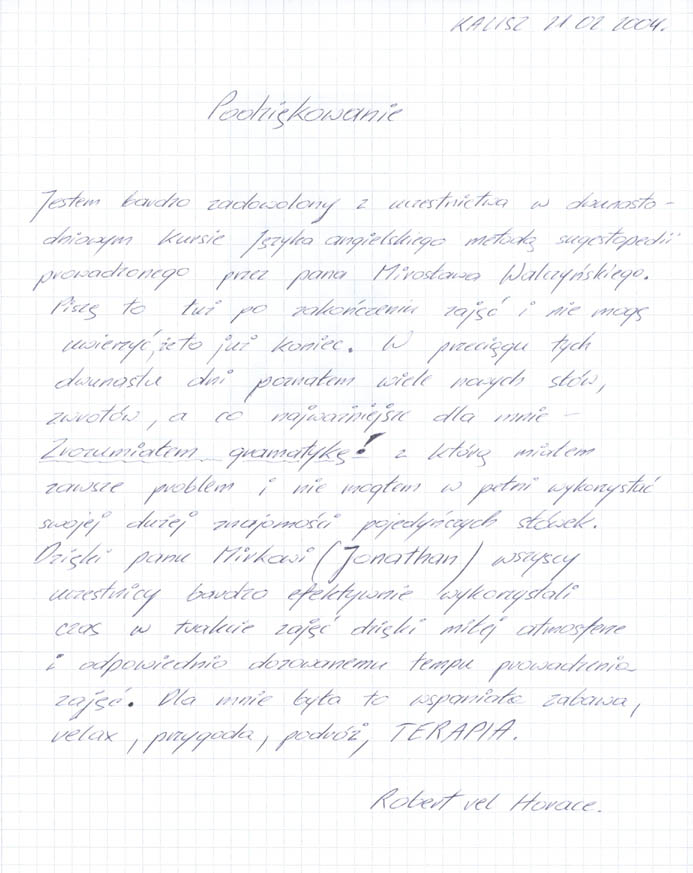 KALISZ 21 02 2004.
Podziękowanie
Jestem bardzo zadowolony z uczestnictwa w dwunasto-
dniowym Kursie Języka angielskiego metodą sugestopedii
prowadzonego przez pana Mirosława Walczyńskiego.
Piszę to tuż po zakończeniu zajęć i nie mogę
uwierzyć, że to już koniec. W przeciągu tych
dwunastu dni poznałem wiele nowych słów,
zwrotów, a co najważniejsze dla mnie -
Zrozumiałem gramatykę! z którą miałem
zawsze problem i nie mogłem w pełni wykorzystać
swojej dużej znajomości pojedyńczych słówek.
Dzięki panu Mirkowi (Jonathan) wszyscy
uczestnicy bardzo efektywnie wykorzystali
czas w trakcie zajęć dzięki miłej atmosferze
i odpowiednio dozowanemu tempu prowadzenia
zajęć. Dla mnie była to wspaniała zabawa,
relax, przygoda, podróż, TERAPIA.
Robert vel Horace.